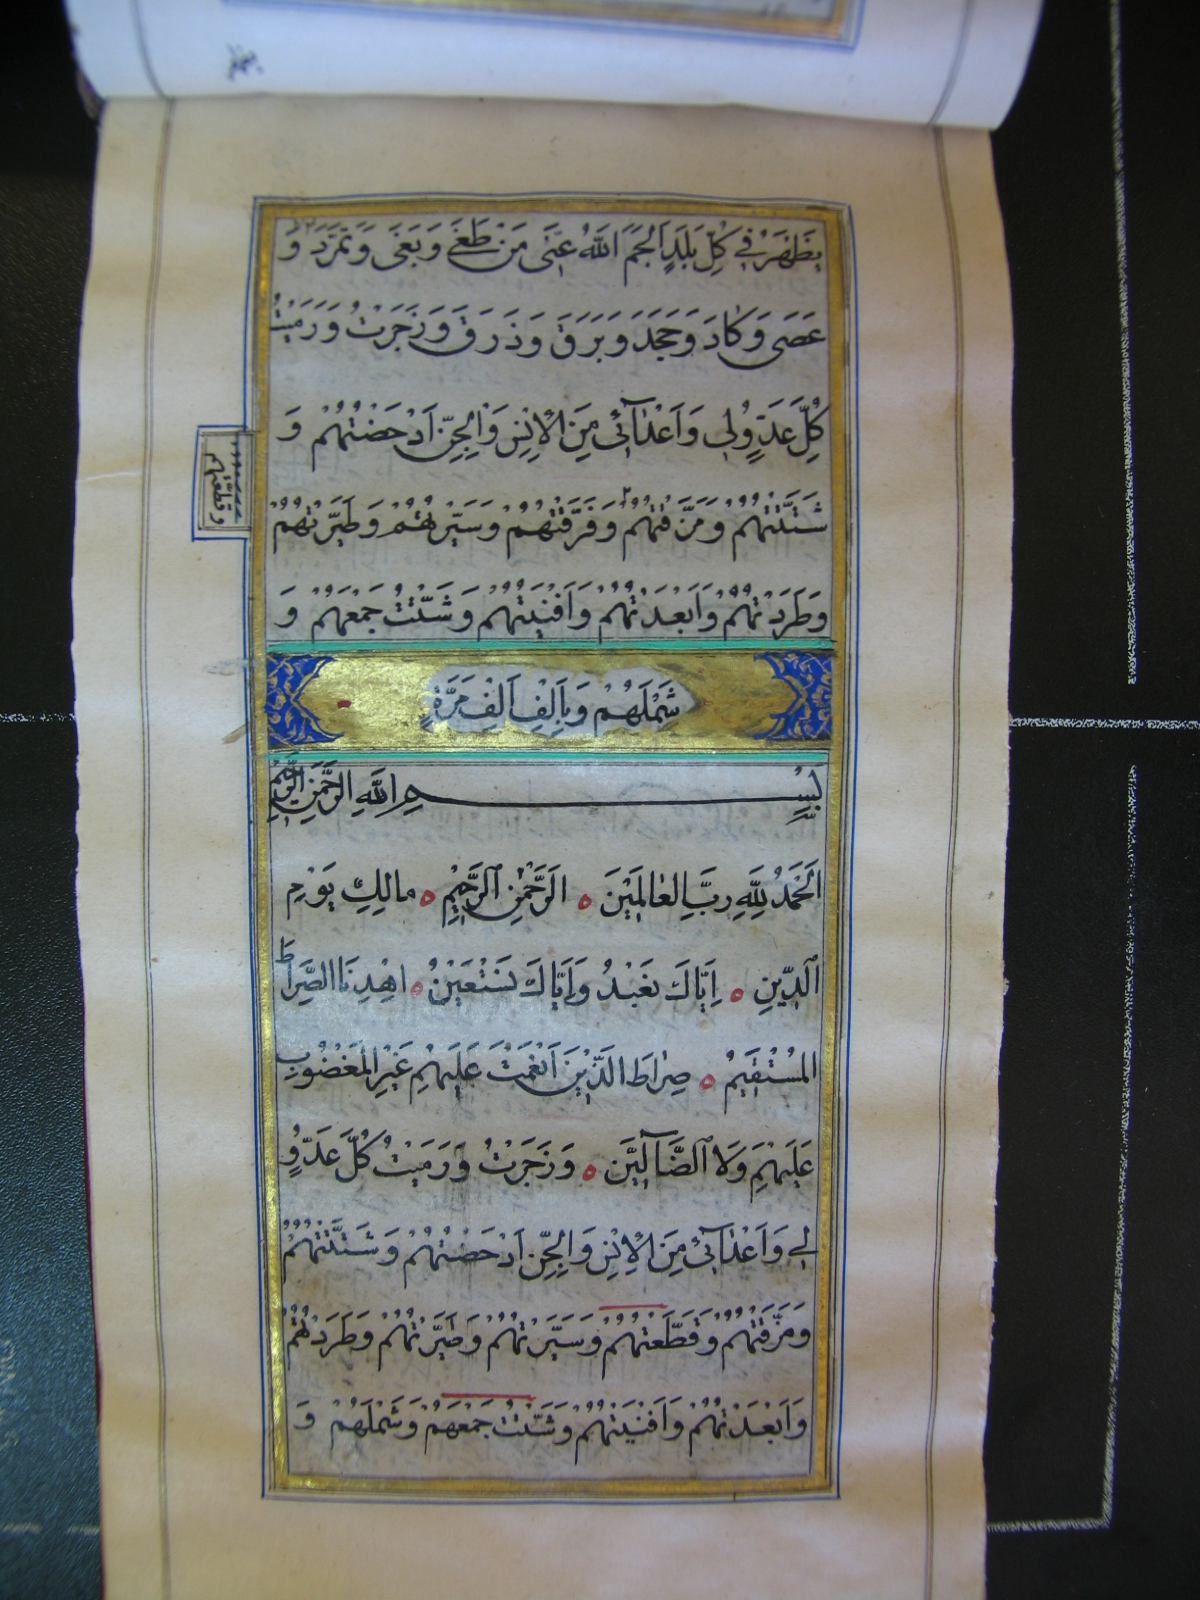 يَظْهَرُ فِي كُلِّ بَلَدٍ اَلْجَمَ اللّٰهُ عَنِّى مَنْ طَغٰى وَبَغٰى وَتَمَرَّدَ وَ
عَصٰى وَكَادَ وَجَحَدَ وَبَرَقَ وَذَرَقَ وَزَجَرْتُ وَرَمَيْتُ
كُلَّ عَدُوٍّ لِى وَاَعْدَآئِى مِنَ الْاِنْسِ وَالْجِنِّ اَدْحَضْتُهُمْ وَ
شَتَّتُّهُمْ وَمَزَّقْتُهُمْ وَفَرَّقْتُهُمْ وَسَيَّرْتُهُمْ وَطَيَّرْتُهُمْ
وقطعتهم
وَطَرَدْتُهُمْ وَاَبْعَدْتُهُمْ وَاَفْنَيْتُهُمْ وَشَتَّتْتُ جَمْعَهُمْ وَ
شَمْلَهُمْ وَبِاَلْفِ اَلْفِ مَرَّةٍ
بِسْمِ اللّٰهِ الرَّحْمٰنِ الرَّحِيْمِ
اَلْحَمْدُ لِلّٰهِ رَبِّ الْعٰالَمِيْنَ ه اَلرَّحْمٰنِ الرَّحِيْمِ ه مالِكِ يَوْمِ
الدِّيْنِ ه اِيَّاكَ نَعْبُدُ وَاِيَّاكَ نَسْتَعِيْنُ ه اهْدِنَا الصِّرَاطَ
الْمُسْتَقِيْمَ ه صِرَاطَ الَّذِيْنَ اَنْعَمْتَ عَلَيْهِمْ غَيْرِ الْمَغْضُوْبِ
عَلَيْهِمْ وَلَا الضَّآلِّيْنَ ه وَزَجَرْتُ وَرَمَيْتُ كُلَّ عَدُوٍّ
لِى وَاَعْدَآئِى مِنَ الْاِنْسِ وَالْجِنِّ اَدْحَضْتُهُمْ وَشَتَّتُّهُمْ
وَمَزَّقْتُهُمْ وَقَطَّعْتُهُمْ وَسَيَّرْتُهُمْ وَطَيَّرْتُهُمْ وَطَرَدْتُهُمْ
وَاَبْعَدْتُهُمْ وَاَفْنَيْتُهُمْ وَشَتَّتْتُ جَمْعَهُمْ وَشَمْلَهُمْ وَ